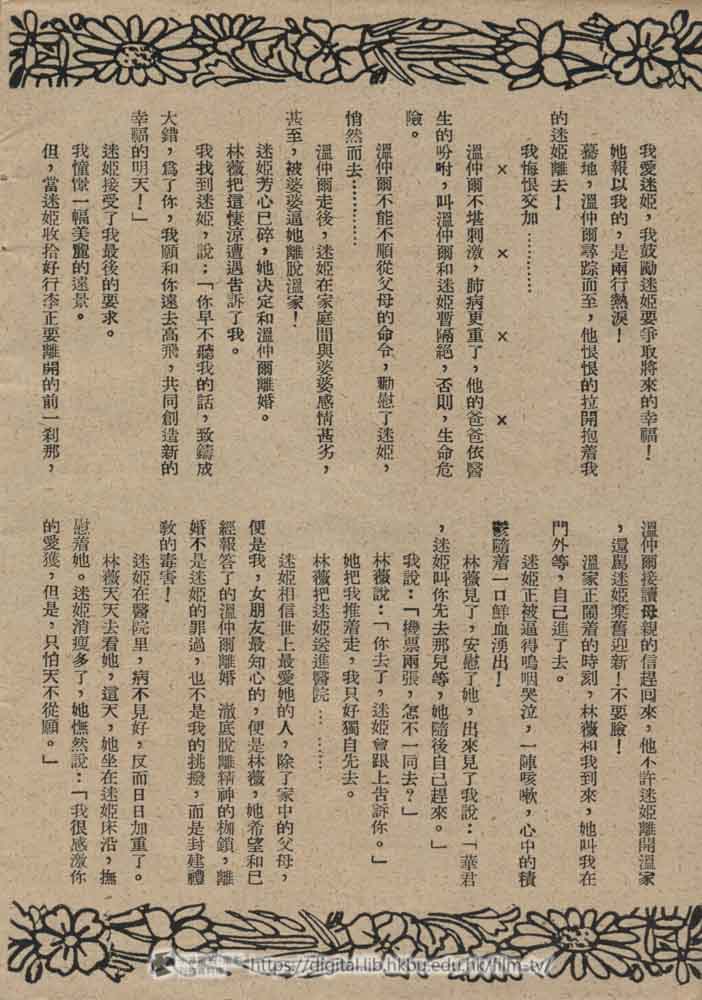 我愛迷姬，我鼓勵迷姬要爭取將來的幸福！
她報以我的，是兩行熱淚！
驀地，溫仲爾尋踪而至，他恨恨的拉開抱着我
的迷姬離去！
我悔恨交加…………
×　×　×　×
溫仲爾不堪刺激，肺病更重了，他的爸爸依醫
生的吩咐，叫溫仲爾和迷姬暫隔絕，否則，生命危
險。
溫仲爾不能不順從父母的命令，勸慰了迷姬，
悄然而去…………
溫仲爾走後，迷姬在家庭間與婆婆感情甚劣，
甚至，被婆婆逼她離脫溫家！
迷姬芳心已碎，她决定和溫仲爾離婚。
林薇把這悽涼遭遇告訴了我。
我找到迷姬，說：「你早不聽我的話，致鑄成
大錯，爲了你，我願和你遠去高飛，共同創造新的
幸福的明天！」
迷姬接受了我最後的要求。
我憧憬一幅美麗的遠景。
但，當迷姬收拾好行李正要離開的前一刹那，
溫仲爾接讀母親的信趕回來，他不許迷姬離開溫家
，還罵迷姬棄舊迎新！不要臉！
溫家正鬧着的時刻，林薇和我到來，她叫我在
門外等，自己進了去。
迷姬正被逼得嗚咽哭泣，一陣咳嗽，心中的積
鬱隨着一口鮮血湧出！
林薇見了，安慰了她，出來見了我說：「華君
，迷姬叫你先去那兒等，她隨後自己趕來。」
我說：「機票兩張，怎不一同去？」
林薇說：「你去了，迷姬會跟上告訴你。」
她把我推着走，我只好獨自先去。
林薇把迷姬送進醫院… ……
迷姬相信世上最愛她的人，除了家中的父母，
便是我，女朋友最知心的，便是林薇，她希望和已
經報答了的溫仲爾離婚　澈底脫離精神的枷鎖，離
婚不是迷姬的罪過，也不是我的挑撥，而是封建禮
敎的毒害！
迷姬在醫院里，病不見好，反而日日加重了。
林薇天天去看她，這天，她坐在迷姬床沿，撫
慰着她。迷姬消瘦多了，她憮然說：「我很感激你
的愛護，但是，只怕天不從願。」
https://digital.lib.hkbu.edu.hk/film-tv/